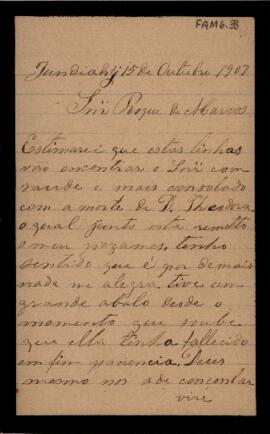 FAM6.38
Jundiahy 15 de Outubro 1907
Snr Roque de Marcos
Estimarei que estas linhas
vão encontrar o Snr com
saude e mais consolado
com a morte de D. Theodora
o qual junto esta remetto
o meu pezames, tenho
sentido que é por demais
nada me alegra tive um
grande abalo desde o
momento que soube
que ella tinha fallecido
em fim paciencia, Deus
mesmo nos ade consolar
vire